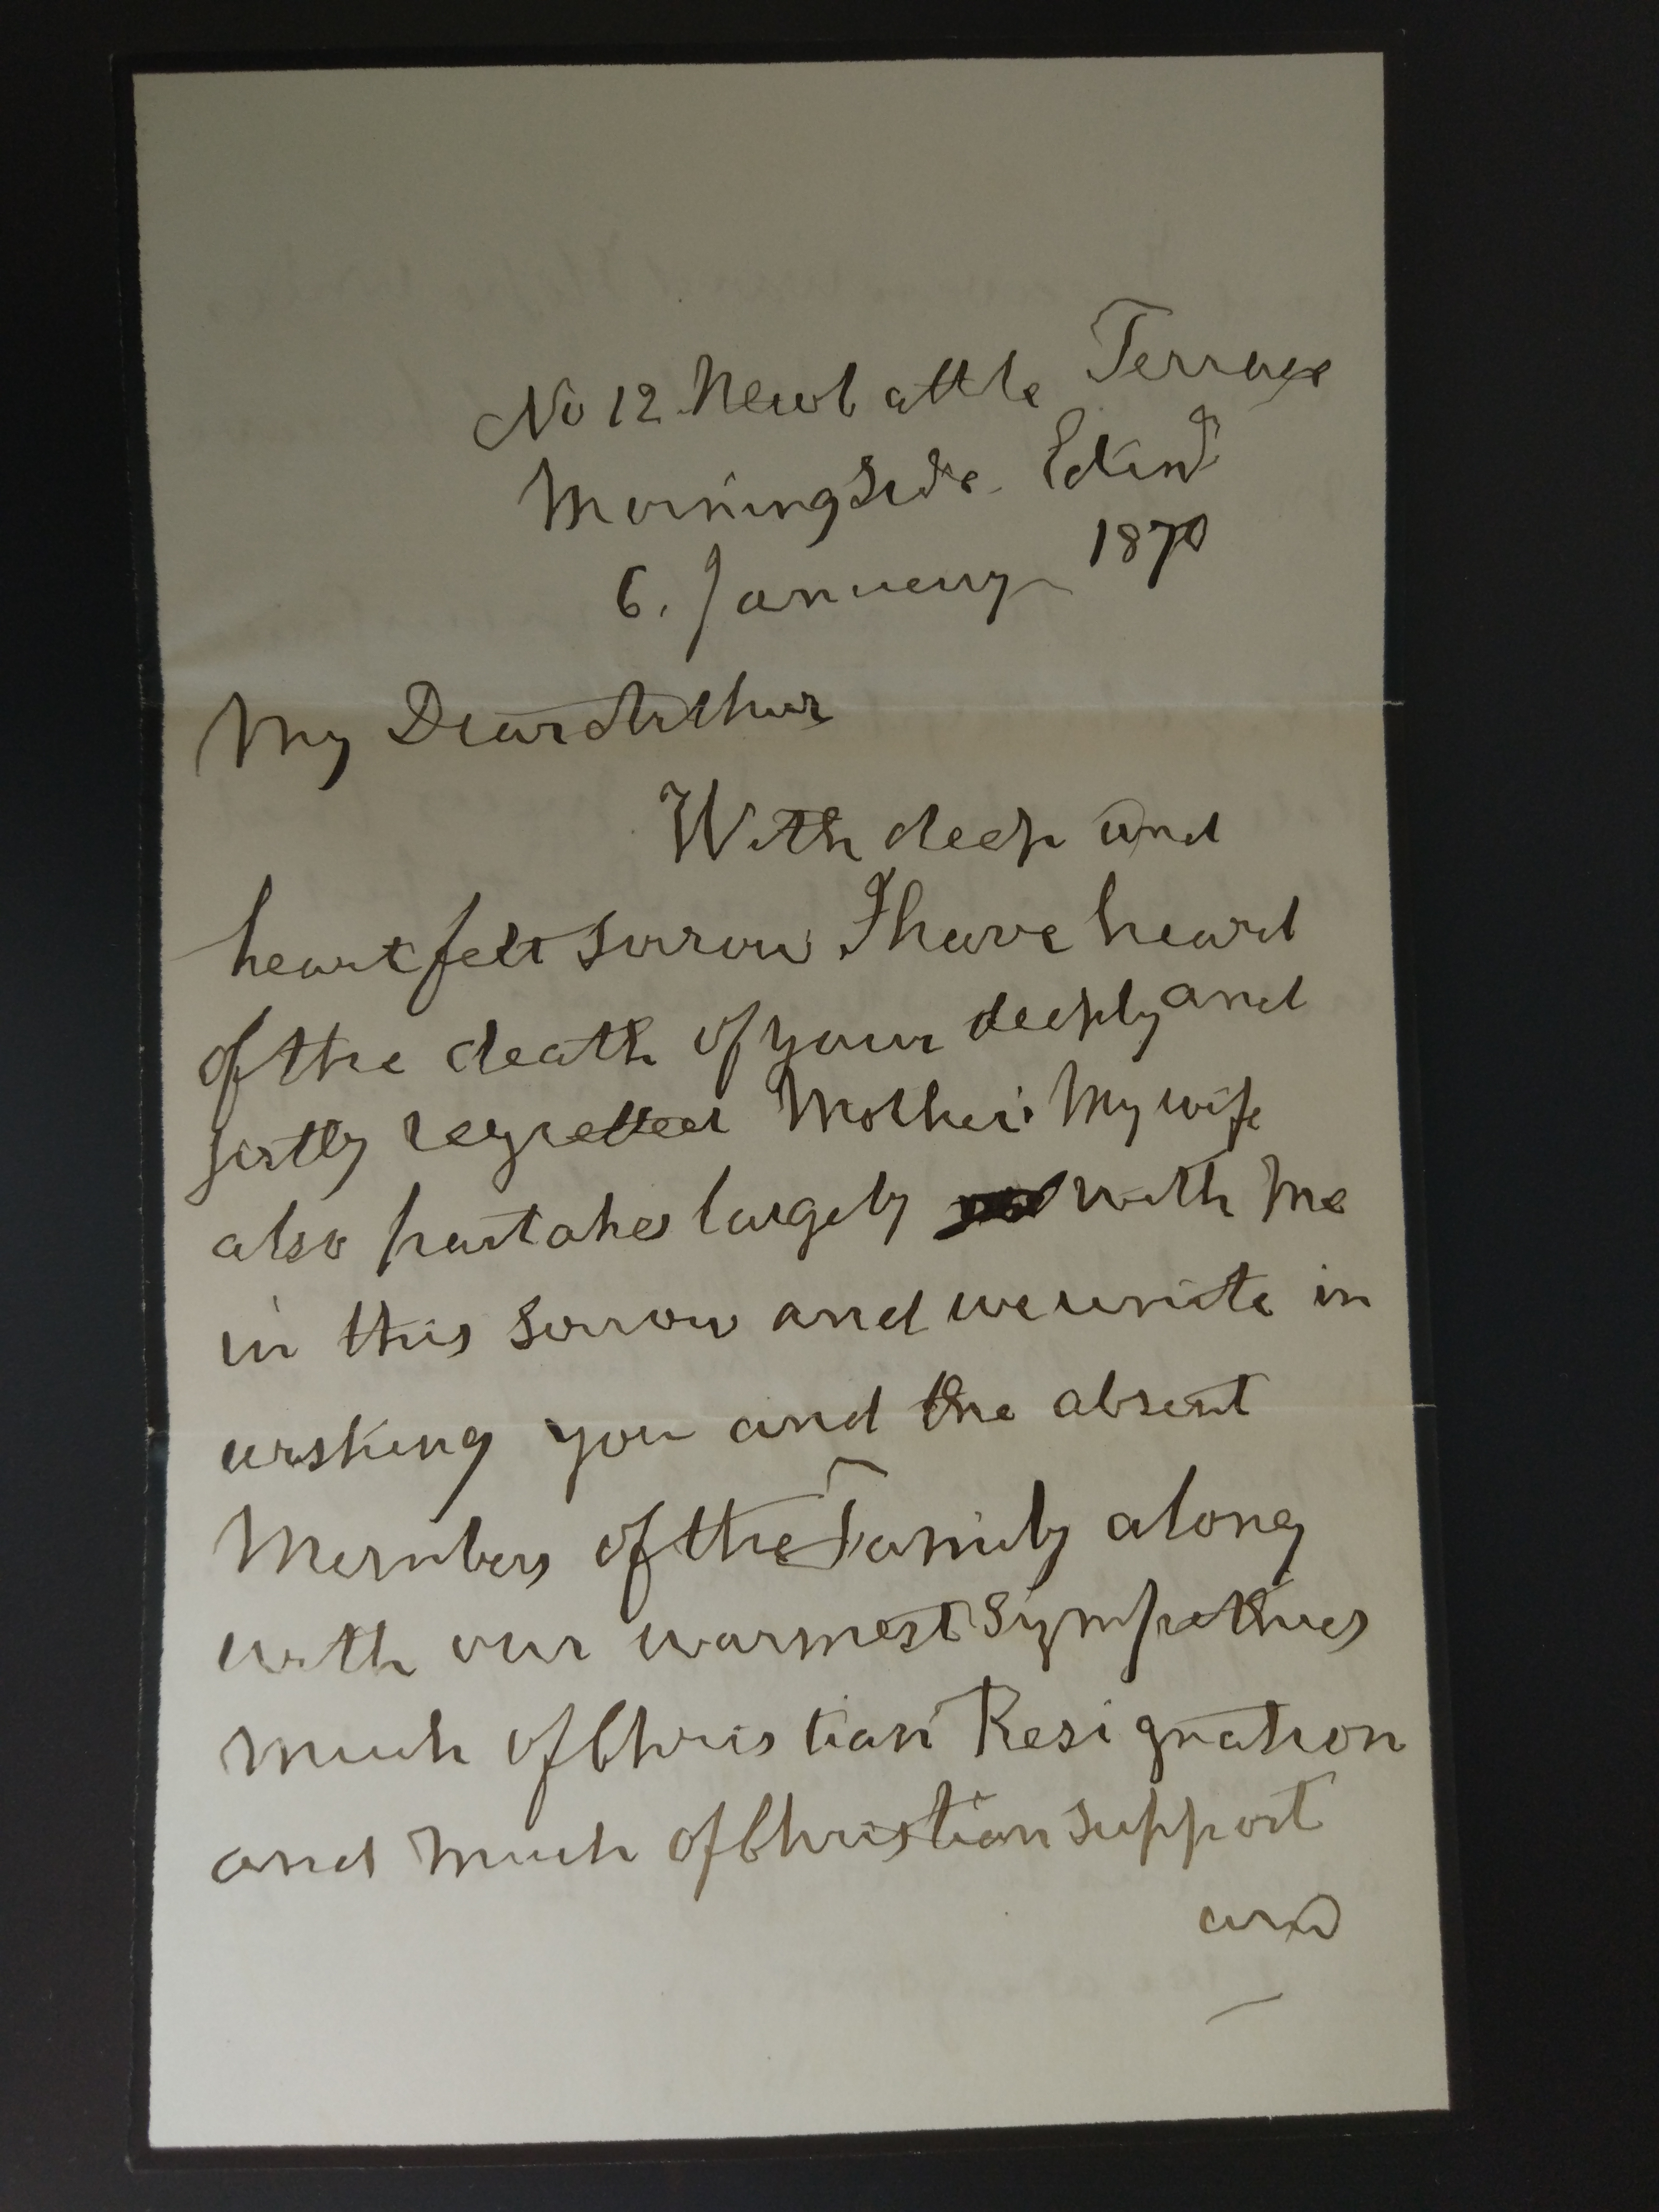 No 12 Newbattle Terrace
Morningside Edinr
6. January 1870
My Dear Arthur
With deep and
heartfelt sorrow I have heard
of the death of your deeply and
justly regretted Mother. My wife
also partakes largely with me
in this sorrow and we unite in
wishing you and the absent
Members of the Family along
with our warmest Sympathies
much of Christian Resignation
and much of Christian support
and